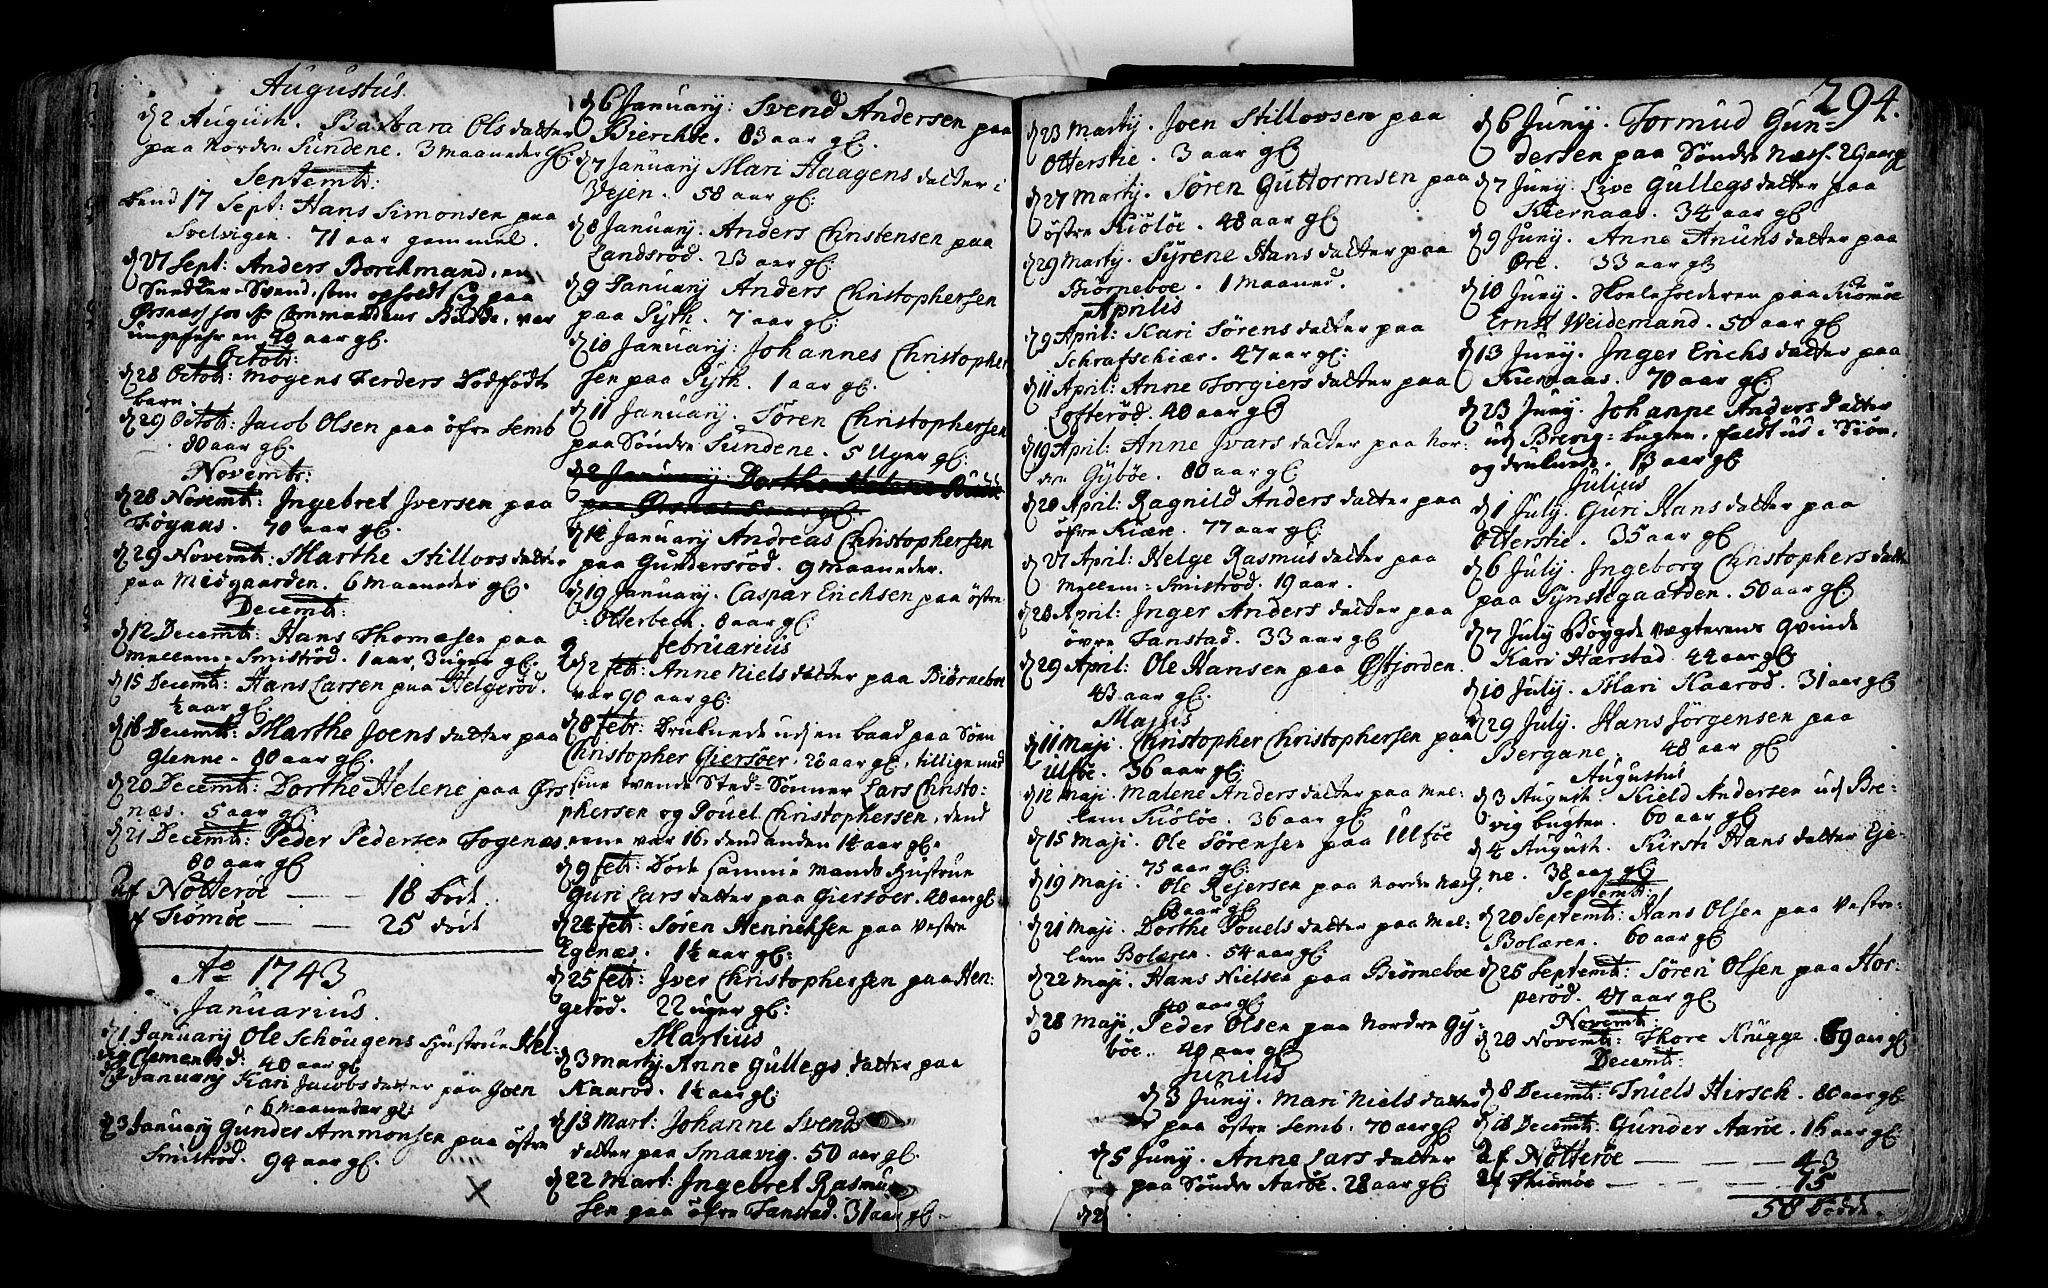 Augustus.
d 2 August. Barbara Olsdatter
paa Nordre Sundene. 3 maaneder gl:
Septembr:
dend 17 Sept: Hans Simonsen paa
Svelvigen. 71 aar gammel.
d 27 Sept: Anders Borchmand, en
Snedker-Svend, som opholdt sig paa
Ørsnæs hos Hr Commandeur Budde, var
ungefehr en 40 aar gl.
Octobr:
d 28 Octob: Mogens Ferders dødfødt
barn.
d 29 Octob: Jacob Olsen paa öfre Semb
80 aar gl:
Novembr:
d 28 Novembr: Ingebret Iversen paa
Fögnæs. 70 aar gl.
d 29 Novembr: Marthe Stillovsdatter
paa Medgaarden. 6 maaneder gl:
Decembr:
d 12 Decembr: Hans Thomæsen paa
mellem-Smiströd. 1 aar, 3 uger gl.
d 15 Decembr: Hans Larsen paa Helgeröd.
½ aar gl.
d 16 Decembr: Marthe Joensdatter paa
Glenne. 80 aar gl.
d 20 Decembr: Dorthe Helene paa Ørs
næs. 5 aar gl:
d 21 Decembr: Peder Pedersen Fogenæs
80 aar gl
Af Nötteröe — — 18 död.
Af Tiömöe — — 25 död
Ao 1743
Januarius.
d 1 January Ole Schougens Hustrue Hel:
Clemensd: 40 aar gl
d 2 January Kari Jacobsdatter paa Goen
6 maaneder gl:
d 3 January Gunder Ammonsen paa östre
Smiströd. 94 aar gl.
d 6 January: Svend Andersen paa
Bierchøe. 83 aar gl.
d 7 January Mari Haagensdatter i
Vejen. 58 aar gl:
d 8 January. Anders Christensen paa
Landsröd. 23 aar gl.
d 9 January Anders Christophersen
paa Pyth. 7 aar gl:
d 10 January: Johannes Christopher
sen paa Pyth. 1 aar gl.
d 11 January. Sören Christophersen
paa Söndre Sundene. 5 Uger gl:
d 2 January Dorthe Helene Budde
paa Ørsnæs 5 aar gl.
d 14 January Andreas Christophersen
paa Gundersröd. 9 maaneder.
d 19 January. Caspar Erichsen paa östre
Otterbech. 8 aar gl:
Februarius
d 2 febr: Anne Nielsdatter paa Biörneboe
var 90 aar gl:
d 8 febr: Druknede udj en baad paa Söen
Christopher Giersöer. 28 aar gl, tillige med
sine tvende Sted-Sönner Lars Christo-
phersen og Pouel Christophersen, dend
eene var 16, dend anden 14 aar gl.
d 9 febr: Döde samme Mands Hustrue
Guri Larsdatter paa Giersöer. 40 aar gl
d 24 febr: Sören Henrichsen paa Vestre
Egenæs. 1½ aar gl:
d 25 febr: Iver Christophersen paa Hen-
geröd. 22 uger gl:
Martius
d 3 Marty. Anne Gullegsdatter paa
Kaaröd. 1½ aar gl:
d 13 Mart: Johanne Svend
datter paa Smaavig. 50 aar gl.
d 22 Mart: Ingebret Rasmu
sen paa öfre Tanstad. 31 aar gl.
294.
d 23 Marty. Joen Stillovsen paa
Otterstie. 3 aar gl
d 27 Marty. Sören Guttormsen paa
östre Kiölöe. 48 aar gl.
d 29 Marty. Syrene Hansdatter paa
Biörneboe. 1 maaned.
Aprilis
d 9 April: Kari Sörensdatter paa
Schrafschiær. 47 aar gl:
d 11 April: Anne Torgiersdatter paa
Lofteröd. 40 aar gl
d 19 April: Anne Ivarsdatter paa Nor-
dre Gyböe. 80 aar gl:
d 20 April: Ragnild Andersdatter paa
öfre Kiære. 77 aar gl:
d 27 April: Helge Rasmusdatter paa
Mellem-Smiströd. 19 aar.
d 28 April: Inger Andersdatter paa
övre Tanstad. 33 aar gl
d 29 April: Ole Hansen paa Østjorden.
43 aar gl:
Majus
d 11 Maji. Christopher Christophersen paa
Ulföe. 36 aar gl:
d 12 Maji. Malene Andersdatter paa Mel-
lem Kiölöe. 36 aar gl:
d 15 Maji. Ole Sörensen paa Ulföe
75 aar gl:
d 19 Maji. Ole Rejersen paa Nordre Næs,
60 aar gl
d 21 Maji. Dorthe Pouelsdatter paa Mel-
lem Bolæren. 54 aar gl
d 22 Maji. Hans Nielsen paa Biörneboe
40 aar gl
d 28 Maji, Peder Olsen paa Nordre Gy-
böe. 40 aar gl
Junius
d 3 Juny. Mari Nielsdatter
paa östre Semb. 70 aar gl
d 5 Juny. Anne Larsdatter
paa Söndre Aaröe. 28 aar gl:
d 2
d 6 Juny. Tormud Gun-
dersen paa Söndre Næss. 26 aar gl
d 7 Juny. Live Gullegsdatter paa
Kiernaas. 34 aar gl
d 9 Juny. Anne Anunsdatter paa
Øre. 33 aar gl
d 10 Juny. Skoleholderen paa Tiömöe
Ernst Weidemand. 50 aar gl
d 13 Juny. Inger Erichsdatter paa
Kiernaas. 70 aar gl
d 23 Juny. Johanne Andersdatter
udj Brevig-bugten, faldt ud i Siön,
og druknede. 13 aar gl
Julius
d 1 July. Guri Hansdatter paa
Otterstie. 35 aar gl
d 6 July. Ingeborg Christophersdatter
paa Synstegaarden. 50 aar gl
d 7 July Böygdevægterens Qvinde
Kari Hærstad. 44 aar gl
d 10 July. Mari Kaaröd. 31 aar gl
d 29 July. Hans Jörgensen paa
Bergane. 48 aar gl
Augustus
d 3 August. Kield Andersen udj Bre-
vig bugten. 60 aar gl
d 4 August. Kirsti Hansdatter Eje-
ne. 38 aar gl
Septembr:
d 20 Septembr: Hans Olsen paa Vestre-
Bolæren. 60 aar gl
d 25 Septembr: Sören Olsen paa Hor-
peröd. 47 aar gl
Novembr:
d 20 Novembr: Thore Krugge. 69 aar gl
Decembr:
d 8 Decembr: Truels Hirsch. 80 aar gl
d 18 Decembr: Gunder Aaröe. 16 aar gl
Af Nötteröe — — — 43
Af Thiömöe — — — 15
58 Dödde.